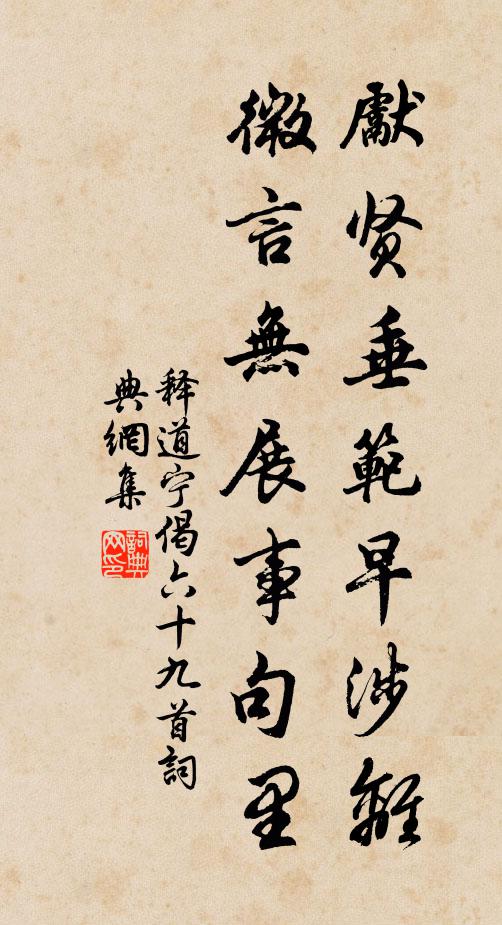 獻贤垂範早涉離
微言無展事句里
释道宁偈六十九首詞
典網集
詞典
网印